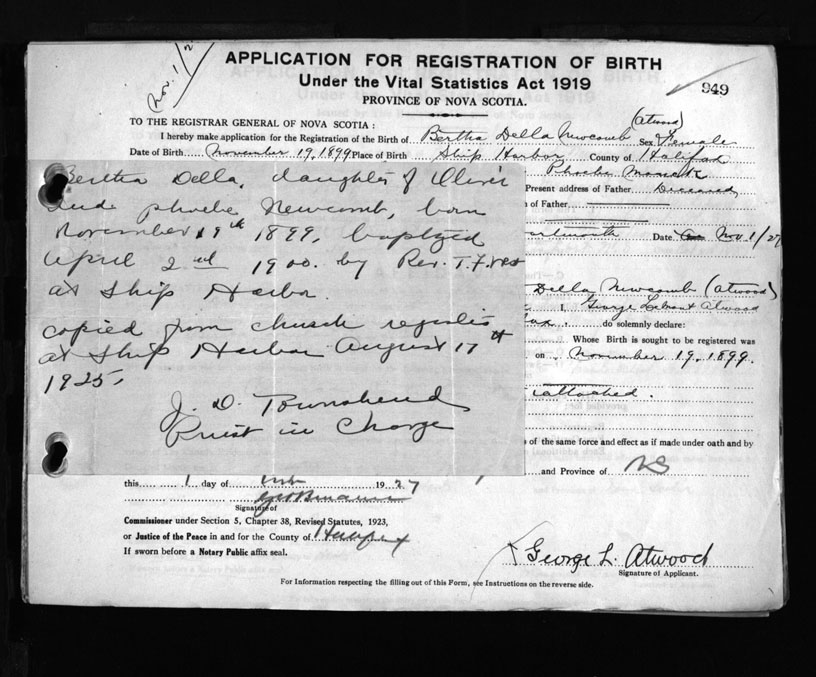 Nov. 1/2
APPLICATION FOR REGISTRATION OF BIRTH
Under the Vital Statistics Act 1919
PROVINCE OF NOVA SCOTIA.
949
TO THE REGISTRAR GENERAL OF NOVA SCOTIA:
(Atwood)
I hereby make application for the Registration of the Birth of Bertha Della Newcomb Sex Female
Date of Birth November 19, 1899 Place of Birth Ship Harbor County of Halifax
Phoebe
Present address of Father Deceased
n of Father
Date Nov 1/27
Bertha Della, daughter of Oliver
and phoebe Newcomb, born
November 19th 1899, baptized
April 2nd 1900. by Rev. T. F.
at Ship Harbor.
copied from church register
at Ship Harbor August 17th
1925.
J. D. Townshend
Priest in Charge
Della Newcomb (Atwood)
I, George Atwood
do solemnly declare:
Whose Birth is sought to be registered was
on November 19, 1899.
attached.
of the same force and effect as if made under oath and by
and Province of NS
this 1 day of 1927
Signature of
Commissioner under Section 5, Chapter 38, Revised Statutes, 1923,
or Justice of the Peace in and for the County of Halifax
If sworn before a Notary Public affix seal.
George L. Atwood
Signature of Applicant.
For Information respecting the filling out of this Form, see Instructions on the reverse side.